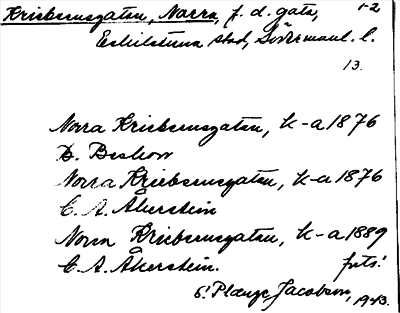 Kriebsensgatan, Norra, f. d. gata, 1-2
Eskilstuna stad, Södermanl. l.
13.
Norra Kriebsensgatan, k-a 1876
D. Beskow
Norra Kriebsensgatan, k-a 1876
C. A. Åkerstein
Norra Kriebsensgatan, k-a 1889
C. A. Åkerstein. forts!
Jacobson, 1943.